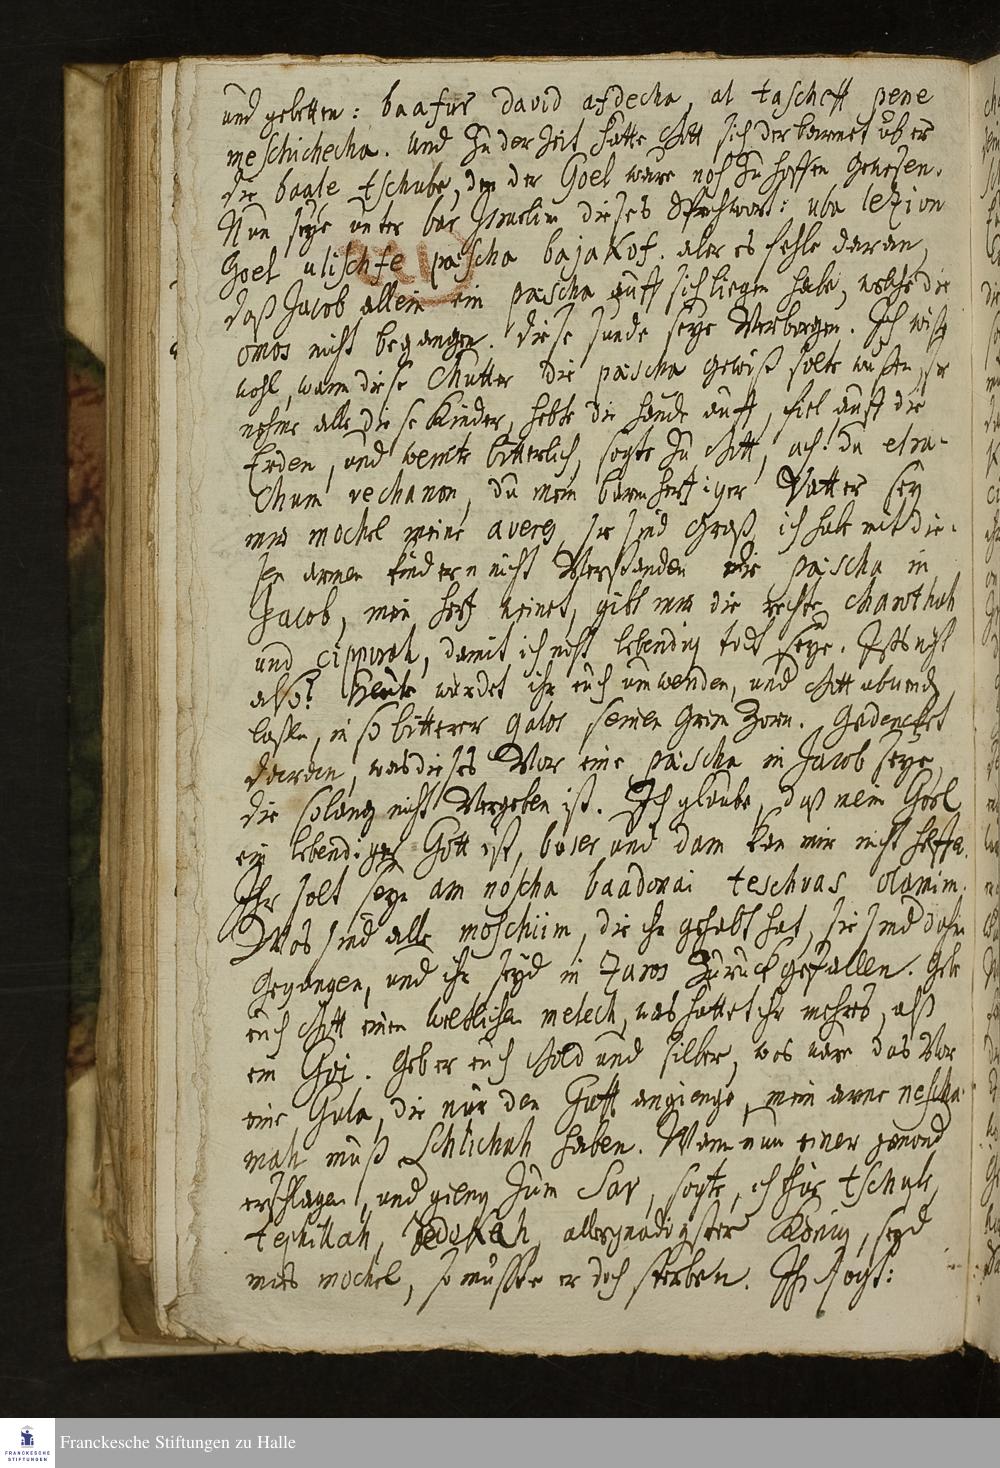 und gebetten: baafur david afdecha, al tascheff pene
meschichecha. Und zu der Zeit hatte Gott sich der barmet über
die baale tschube, den der Goel ware noch zu hoffen gewesen.
Nun seye unter bar Israelim dieses Sprichwort: uba lezion
Goel ulischfe pascha bajakof. aber es fehle daran,
daß Jacob allein ein pascha auff sich liegen habe, welche die
omos nicht begangen. diese sunde seye Verborgen. Ich wiste
wohl, wann diese Mutter die pascha gewiß solte wusten, sie
nehme alle diese Kinder, hebte die hände auff, fiel auff die
Erden, und weinte bitterlich, sagte zu Gott, ach! du el ra-
chum vechanon, du mein barmhertziger Vatter sey
mir mochel meine averes, sie sind Groß, ich habe mit die-
sen armen kindern nicht Verstanden die pascha in
Jacob, mein hertz weinet, gibt mir die rechte charothah
und cippurah, damit ich nicht lebendig todt seye. Ists nicht
also? Heute würdet ihr euch umwenden, und Gott abwend
laßen, in so bitterer galos seinen Grim Zorn. Gedencket
daran, was dieses Vor eine pascha in Jacob seye,
die solang nicht Vergeben ist. Ich glaube, daß mein Goel
ein lebendiger Gott ist, baser und dam kan mir nicht helffen.
Ihr solt seyn am noscha baadonai teschuas olamim.
Was sind alle moschiim, die ihr gehabt hat, sie sind dahin
gegangen, und ihr seyd in Zaros zuruck gefallen. Gebe
euch Gott einen weltlichen melech, was hattet ihr mehres, alß
ein Goi. Geb er euch Gold und silber, was ware das Vor
eine Gula, die nur den Guff angienge, mein arme nescha-
mah muß Schlichah haben. Wann nun einer jemand
erschlagen, und gieng zum Sar, sagte, ich thue tschube,
tephillah, zedakah, allergnädigster König, seyd
mir mochel, so müsste er doch sterben. Ihr sagt:
Franckesche Stiftungen zu Halle
FRANCKESCHE
STIFTUNGEN